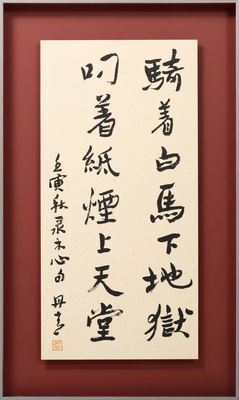 騎着白馬下地獄
叼着紙煙上天堂
壬寅秋录木心句 丹青